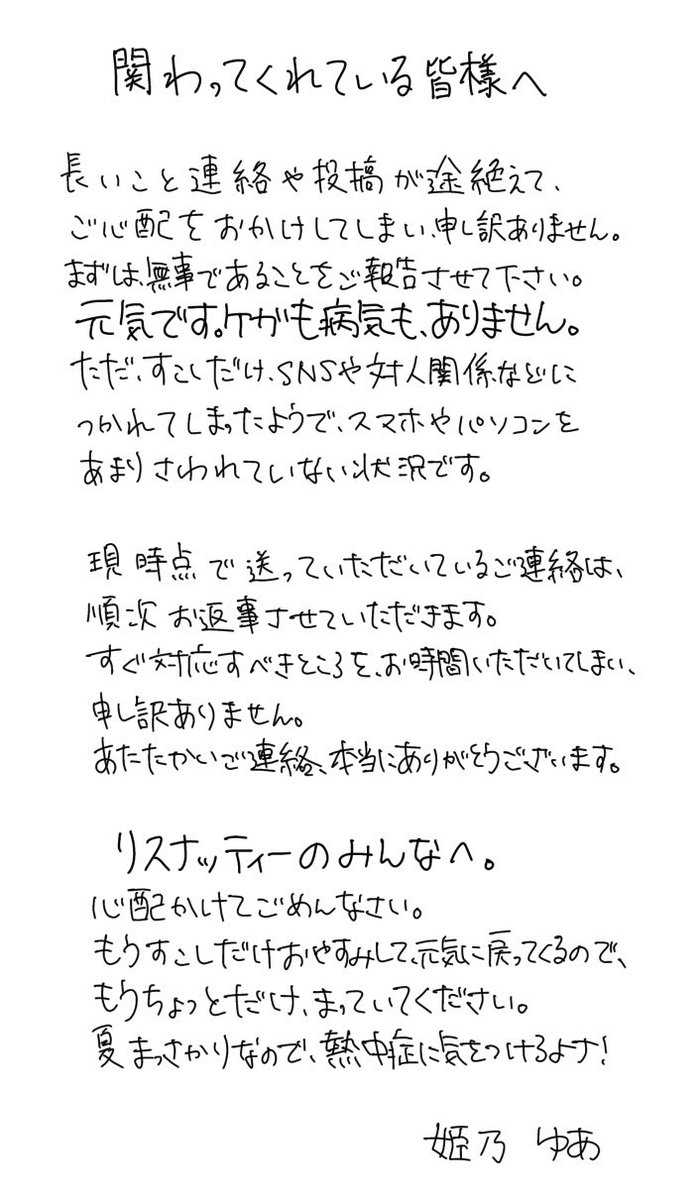 関わってくれている皆様へ
長いこと連絡や投稿が途絶えて、
ご心配をおかけしてしまい、申し訳ありません。
まずは、無事であることをご報告させて下さい。
元気です。ケガも病気も、ありません。
ただ、すこしだけ、SNSや対人関係などに
つかれてしまったようで、スマホやパソコンを
あまりさわれていない状況です。
現時点で送っていただいているご連絡は、
順次お返事させていただきます。
すぐ対応すべきところを、お時間いただいてしまい、
申し訳ありません。
あたたかいご連絡、本当にありがとうございます。
リスナッティーのみんなへ。
心配かけてごめんなさい。
もうすこしだけおやすみして、元気に戻ってくるので、
もうちょっとだけ、まっていてください。
夏まっさかりなので、熱中症に気をつけるよナ!
姫乃 ゆあ